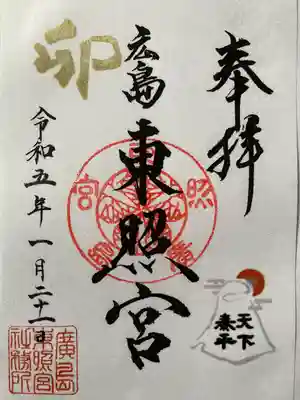 奉拝
天下
泰平
広島
東照宮
卯
令和五年一月二十一日
廣島
東照宮
社務所